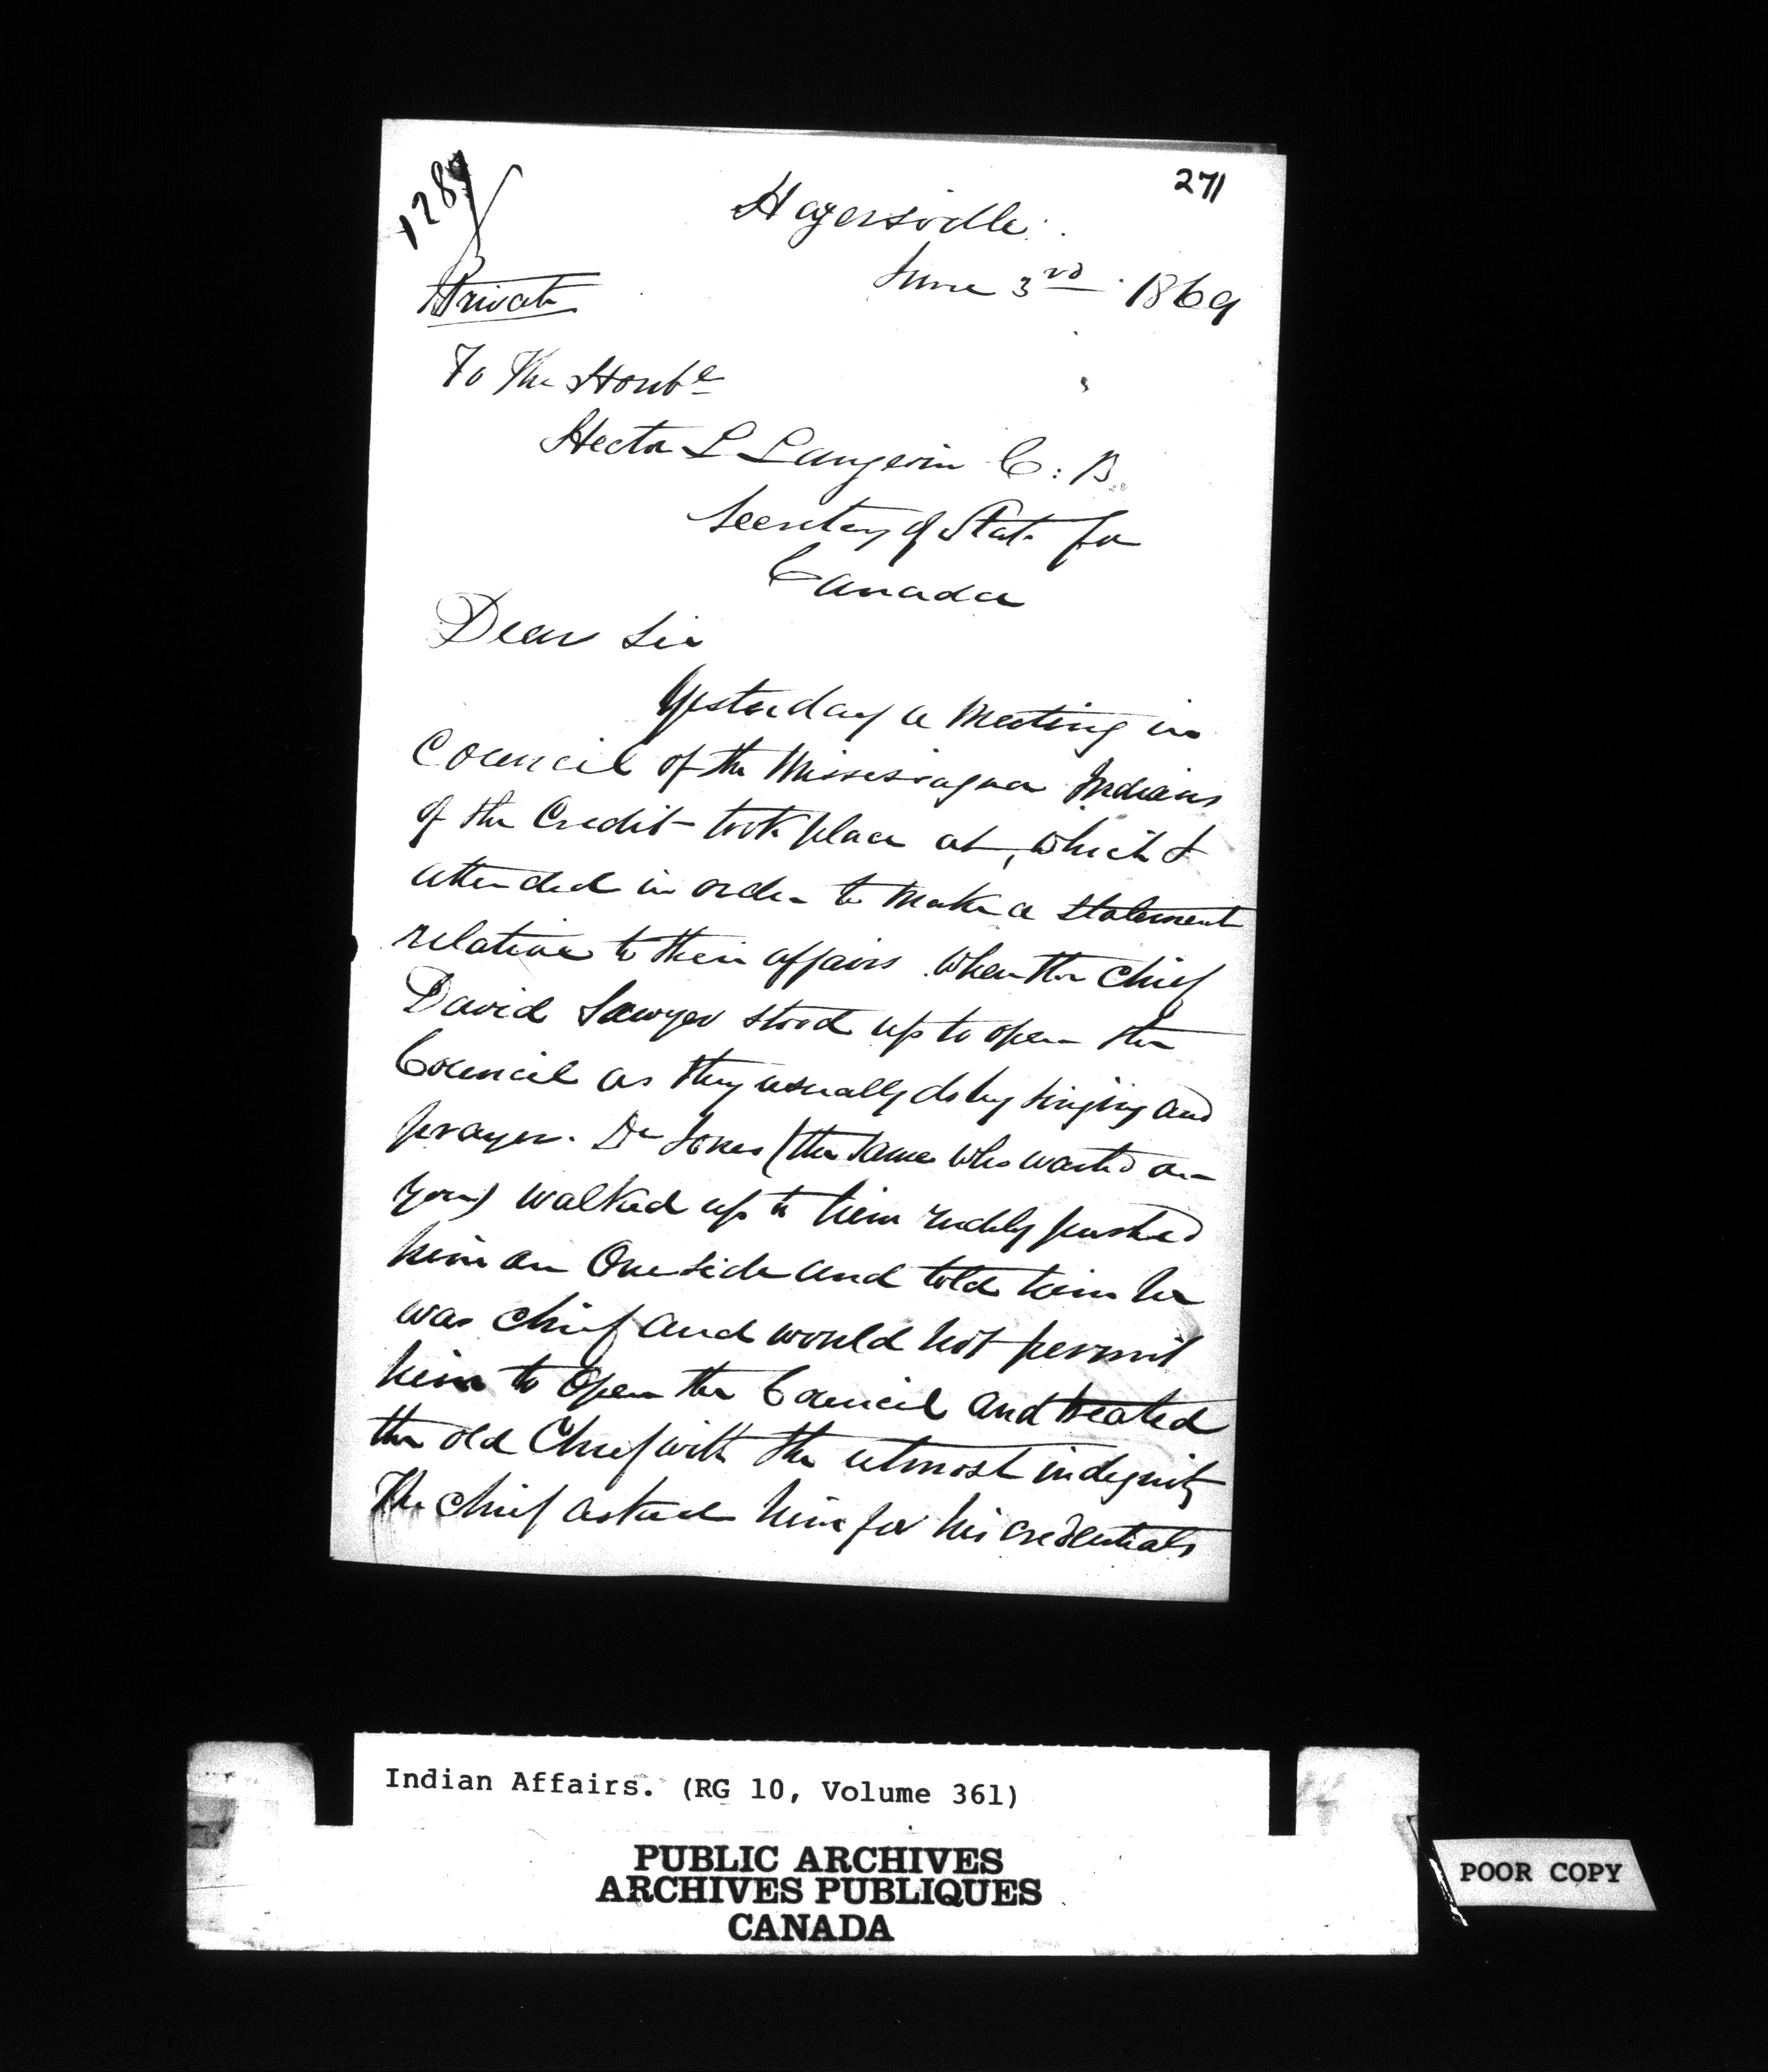 271
Hagersville
June 3rd 1869
Private
To The Honble
Hector L Langevin C: B.
Secretary of State for
Canada
Dear Sir
Yesterday a Meeting in
Council of the Mississagua Indians
of the Credit took place at, which I
attended in order to Make a Statement
relative to their affairs when the Chief
David Sawyer stood up to open the
Council as they usually do by singing and
prayer. Dr Jones (the same who waited on
you) walked up to him rudely pushed
him on One side and told him he
was chief and would not permit
him to Open the Council and treated
the old Chief with the utmost indignity
The chief asked him for his credentials
Indian Affairs. (RG 10, Volume 361)
PUBLIC ARCHIVES
ARCHIVES PUBLIQUES
CANADA
POOR COPY